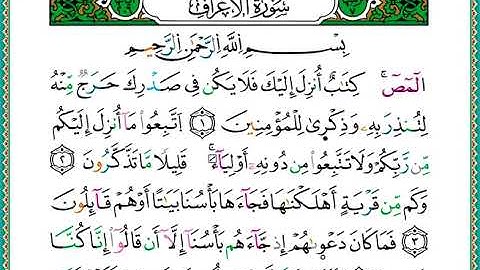 سُورَةُ الْأَعْرَافِ
بِسْمِ اللَّهِ الرَّحْمَٰنِ الرَّحِيمِ
الٓمٓصٓ ۚ كِتَٰبٌ أُنزِلَ إِلَيْكَ فَلَا يَكُن فِى صَدْرِكَ حَرَجٌ مِّنْهُ
لِتُنذِرَ بِهِۦ وَذِكْرَىٰ لِلْمُؤْمِنِينَ ۝١ ٱتَّبِعُوا۟ مَآ أُنزِلَ إِلَيْكُم
مِّن رَّبِّكُمْ وَلَا تَتَّبِعُوا۟ مِن دُونِهِۦٓ أَوْلِيَآءَ ۗ قَلِيلًا مَّا تَذَّكَّرُونَ ۝٢
وَكَم مِّن قَرْيَةٍ أَهْلَكْنَٰهَا فَجَآءَهَا بَأْسُنَا بَيَٰتًا أَوْ هُمْ قَآئِلُونَ
۝٣ فَمَا كَانَ دَعْوَىٰهُمْ إِذْ جَآءَهُم بَأْسُنَآ إِلَّآ أَن قَالُوٓا۟ إِنَّا كُنَّا